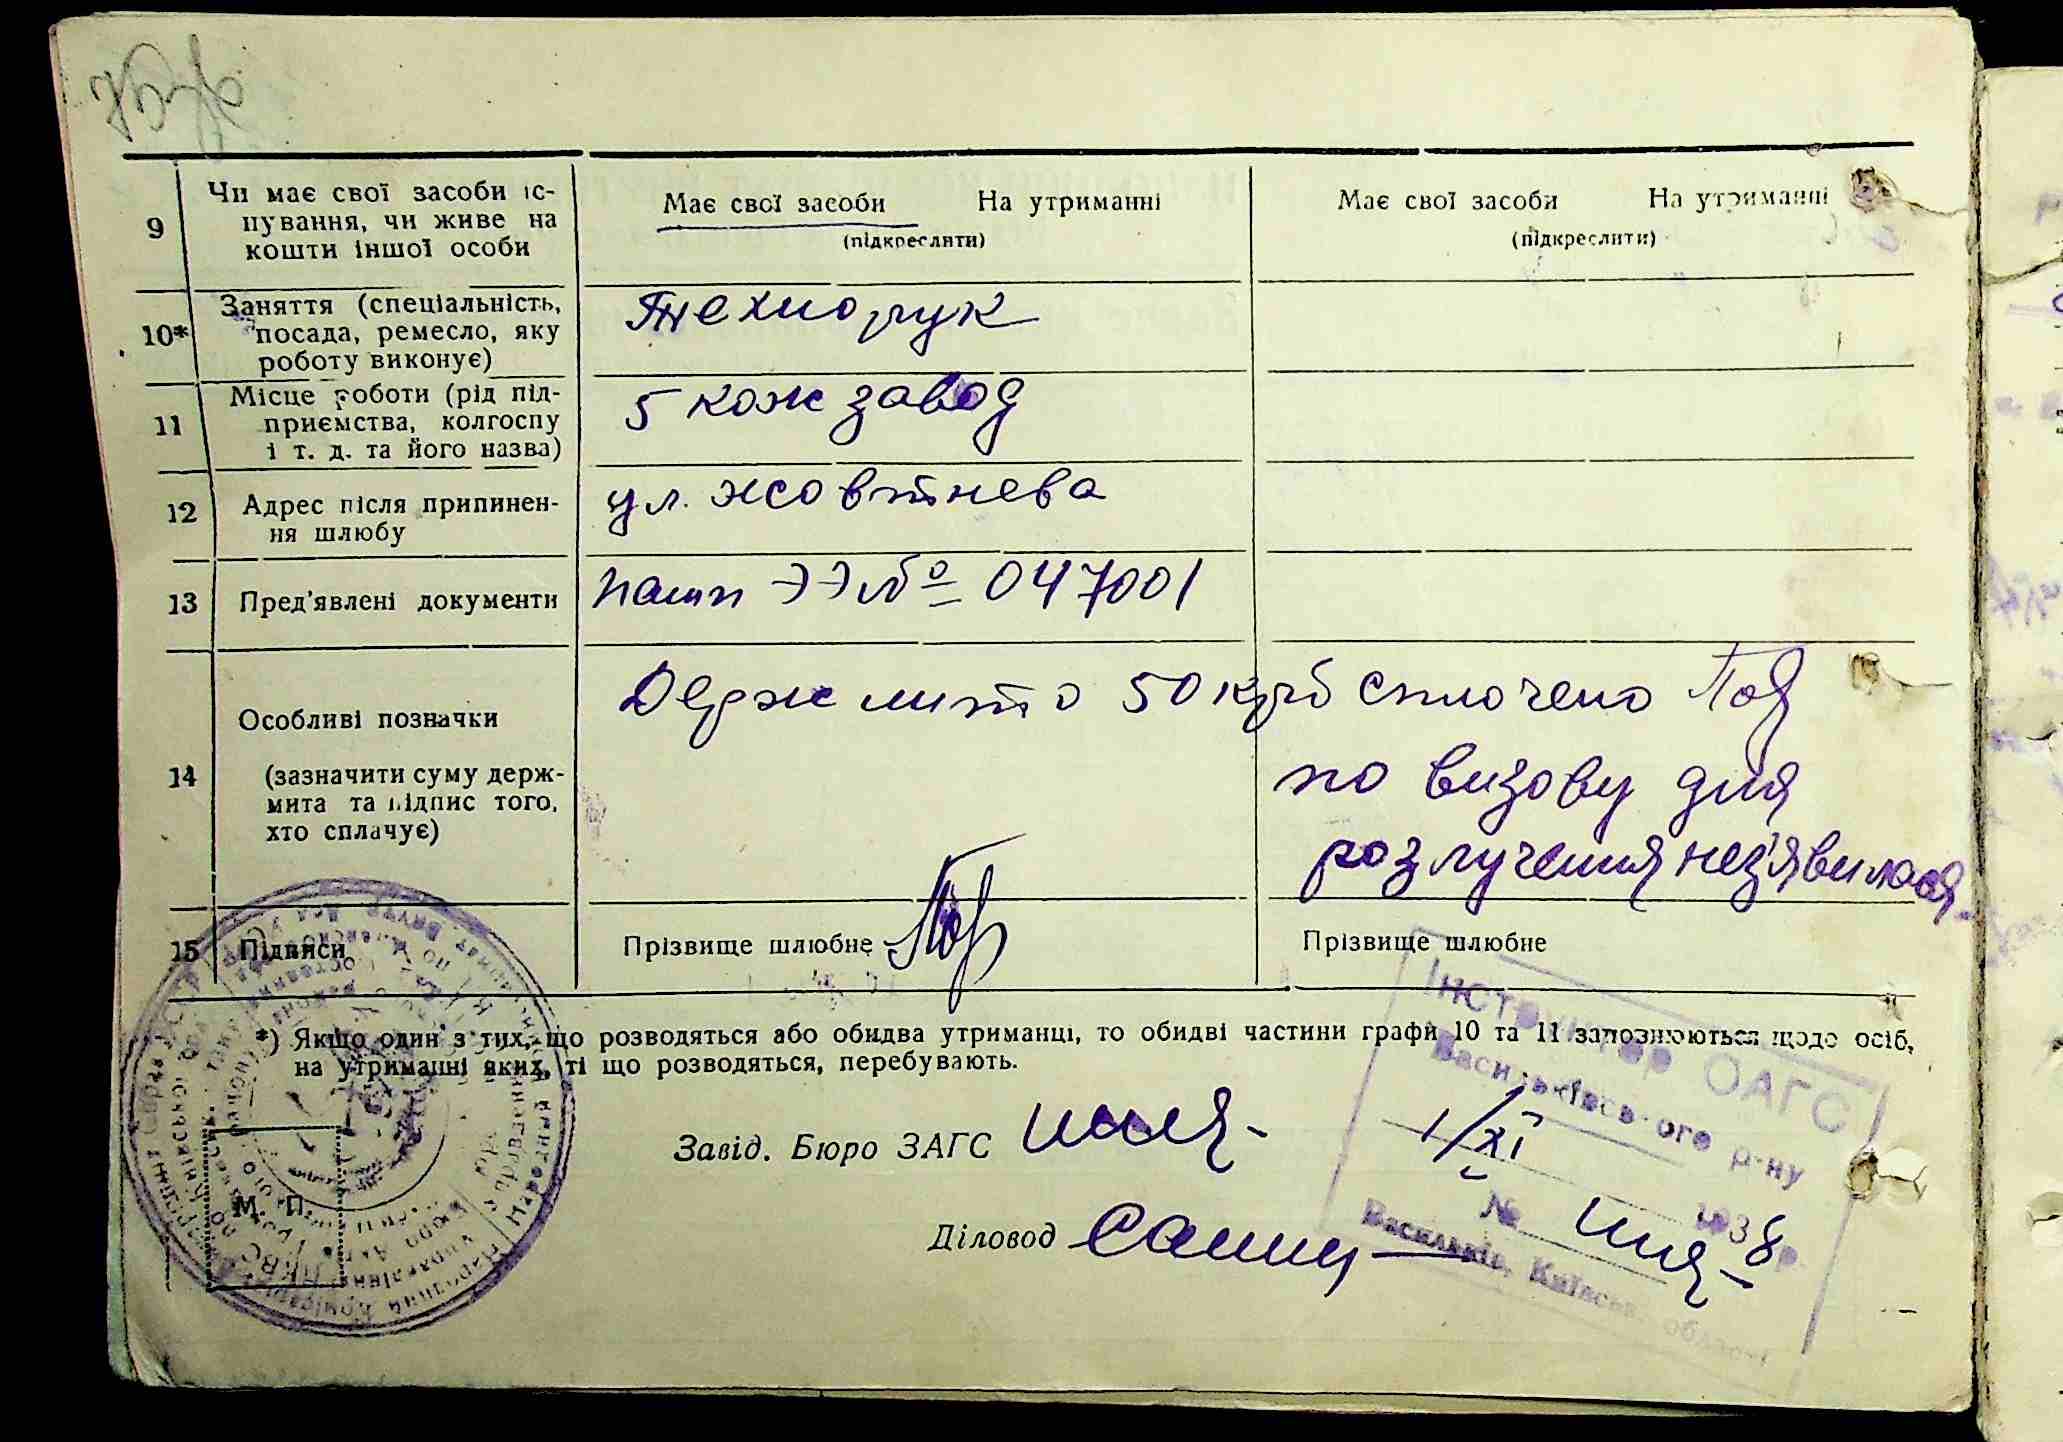 9
Чи має свої засоби іс-
нування, чи живе на
кошти іншої особи
Має свої засоби На утриманні
(підкреслити)
Має свої засоби На утриманні
(підкреслити)
10*
Заняття (спеціальність,
посада, ремесло, яку
роботу виконує)
Технорук
11
Місце роботи (рід під-
приємства, колгоспу
і т. д. та його назва)
5 кож завод
12
Адрес після припинен-
ня шлюбу
ул. Жовтнева
13
Пред'явлені документи
пашп ЭЭ № 047001
14
Особливі позначки
(зазначити суму держ-
мита та підпис того,
хто сплачує)
Держ мито 50 крб сплочено
по визову для
розлучения нез'явилася
15
Підписи
Прізвище шлюбне
Прізвище шлюбне
*) Якщо один з тих, що розводяться або обидва утриманці, то обидві частини графи 10 та 11 заповнюються щодо осіб,
на утриманні яких, ті що розводяться, перебувають.
Завід. Бюро ЗАГС
Діловод
М. П.
Інструктор ОАГС
Васильківського р-ну
1/XI 1938 р.
№
Васильків, Київської області